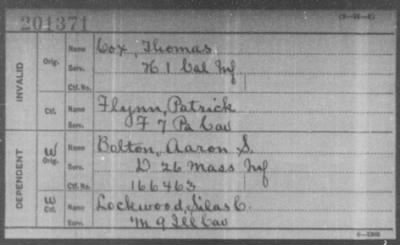 201371
INVALID
Orig.
Name Cox, Thomas
Serv. H 1 Cal Inf
Ctf. No.
Ctf.
Name Flynn, Patrick
Serv. F 7 Pa Cav
DEPENDENT
W
Orig.
Name Bolton, Aaron S.
Serv. D 26 Mass Inf
Ctf. No. 166463
W
Ctf.
Name Lockwood, Silas C.
Serv. M 9 Ill Cav